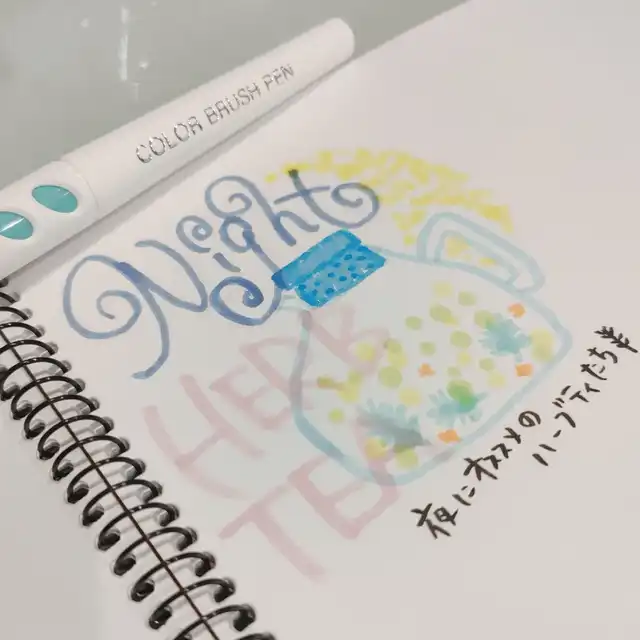 COLOR BRUSH PEN
Night
HERB
TEA
夜にオススメの
ハーブティたち